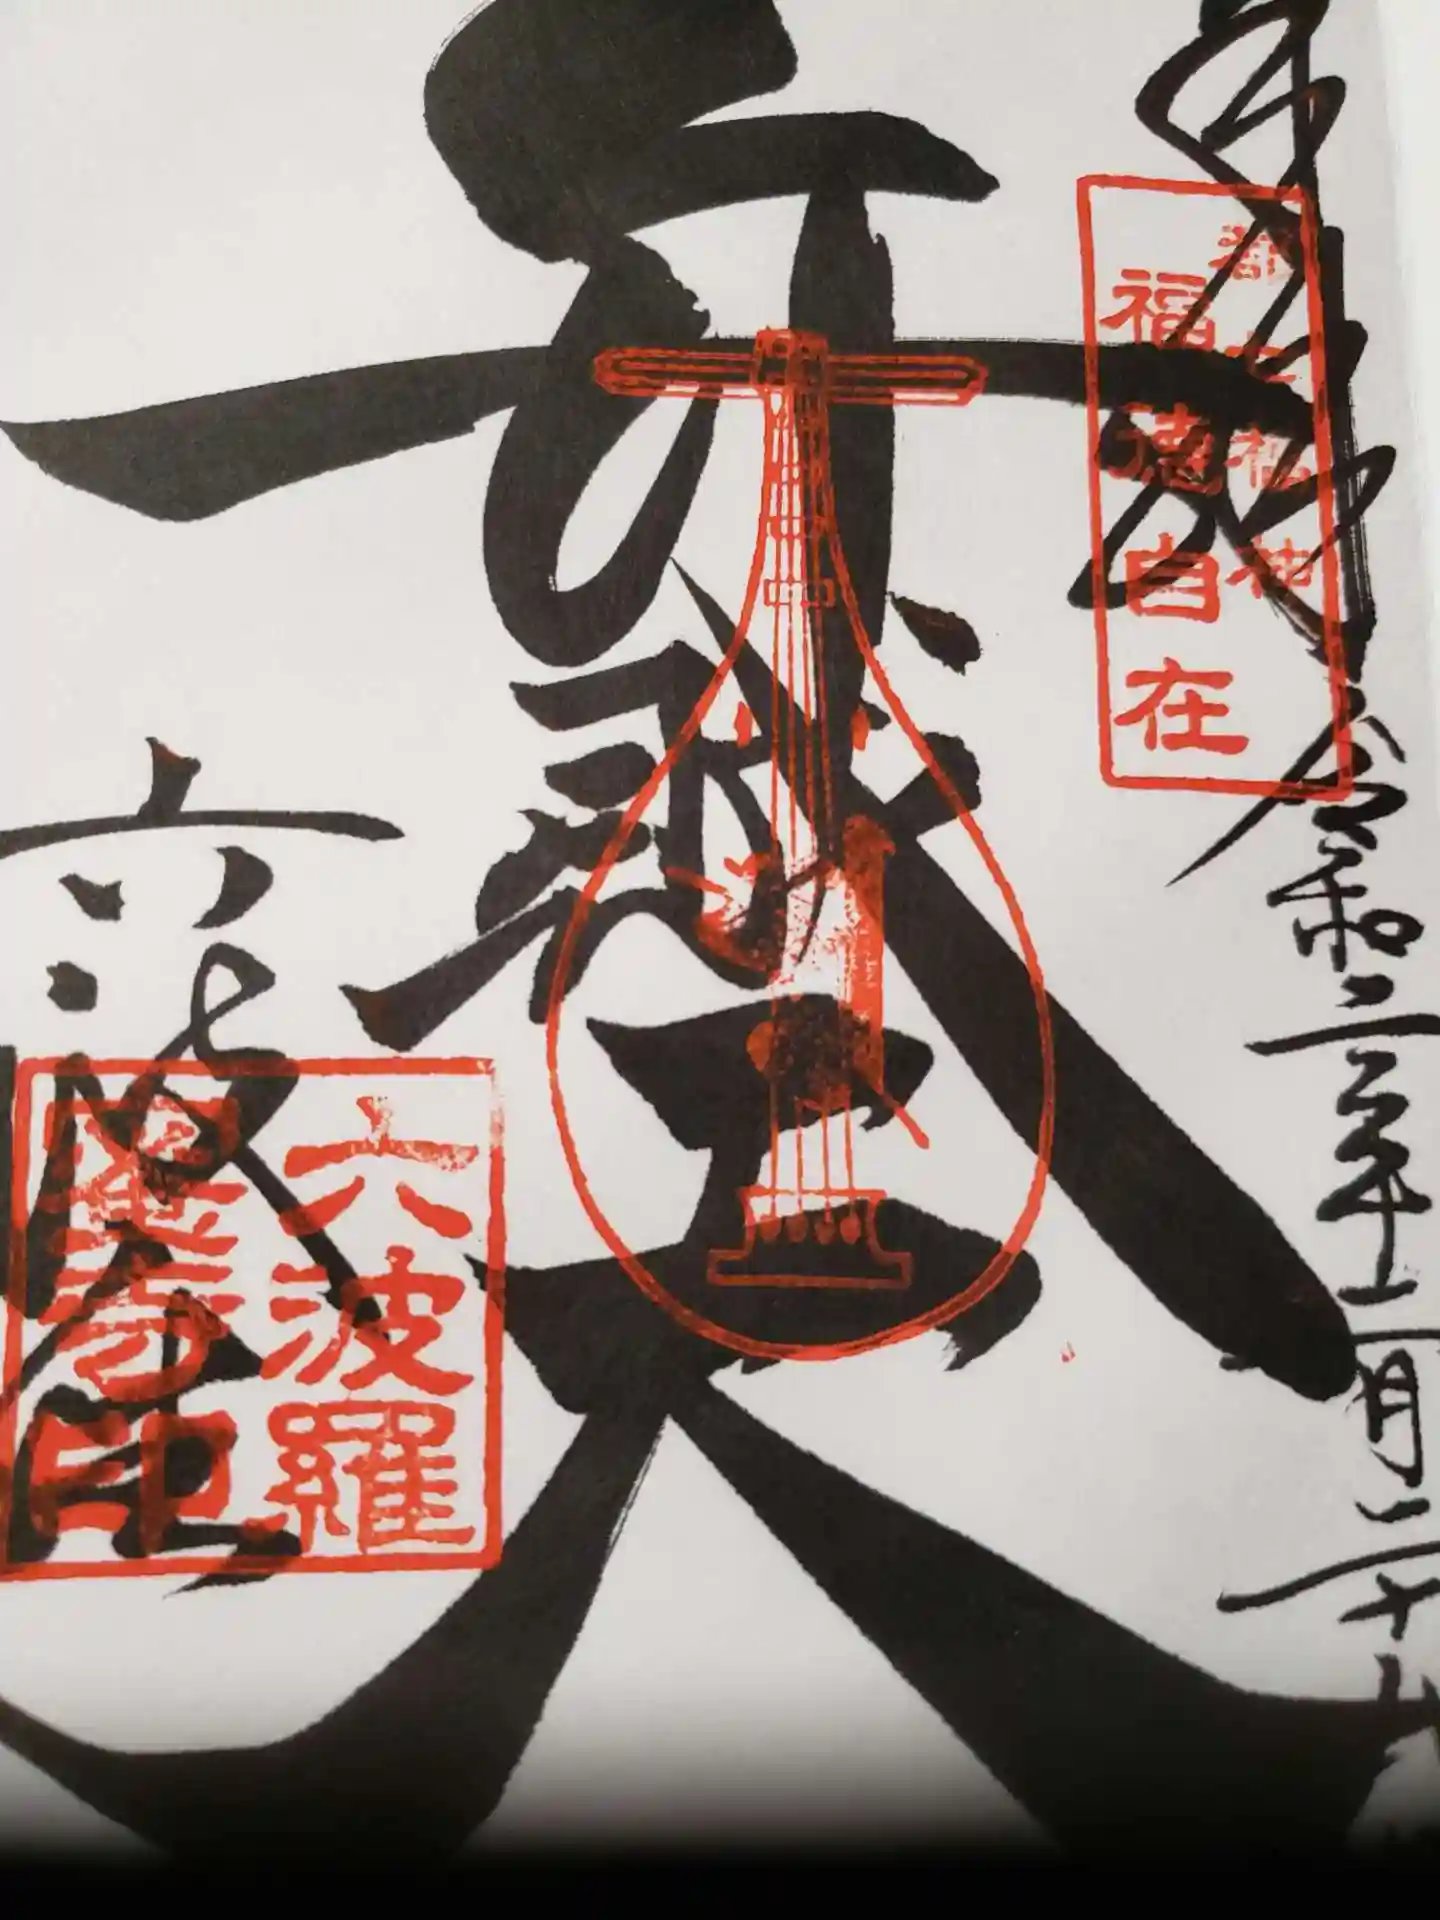 奉拝
令和二年十一月二十九
都七福神
福徳自在
弁財天
六波羅
六波羅
蜜寺印